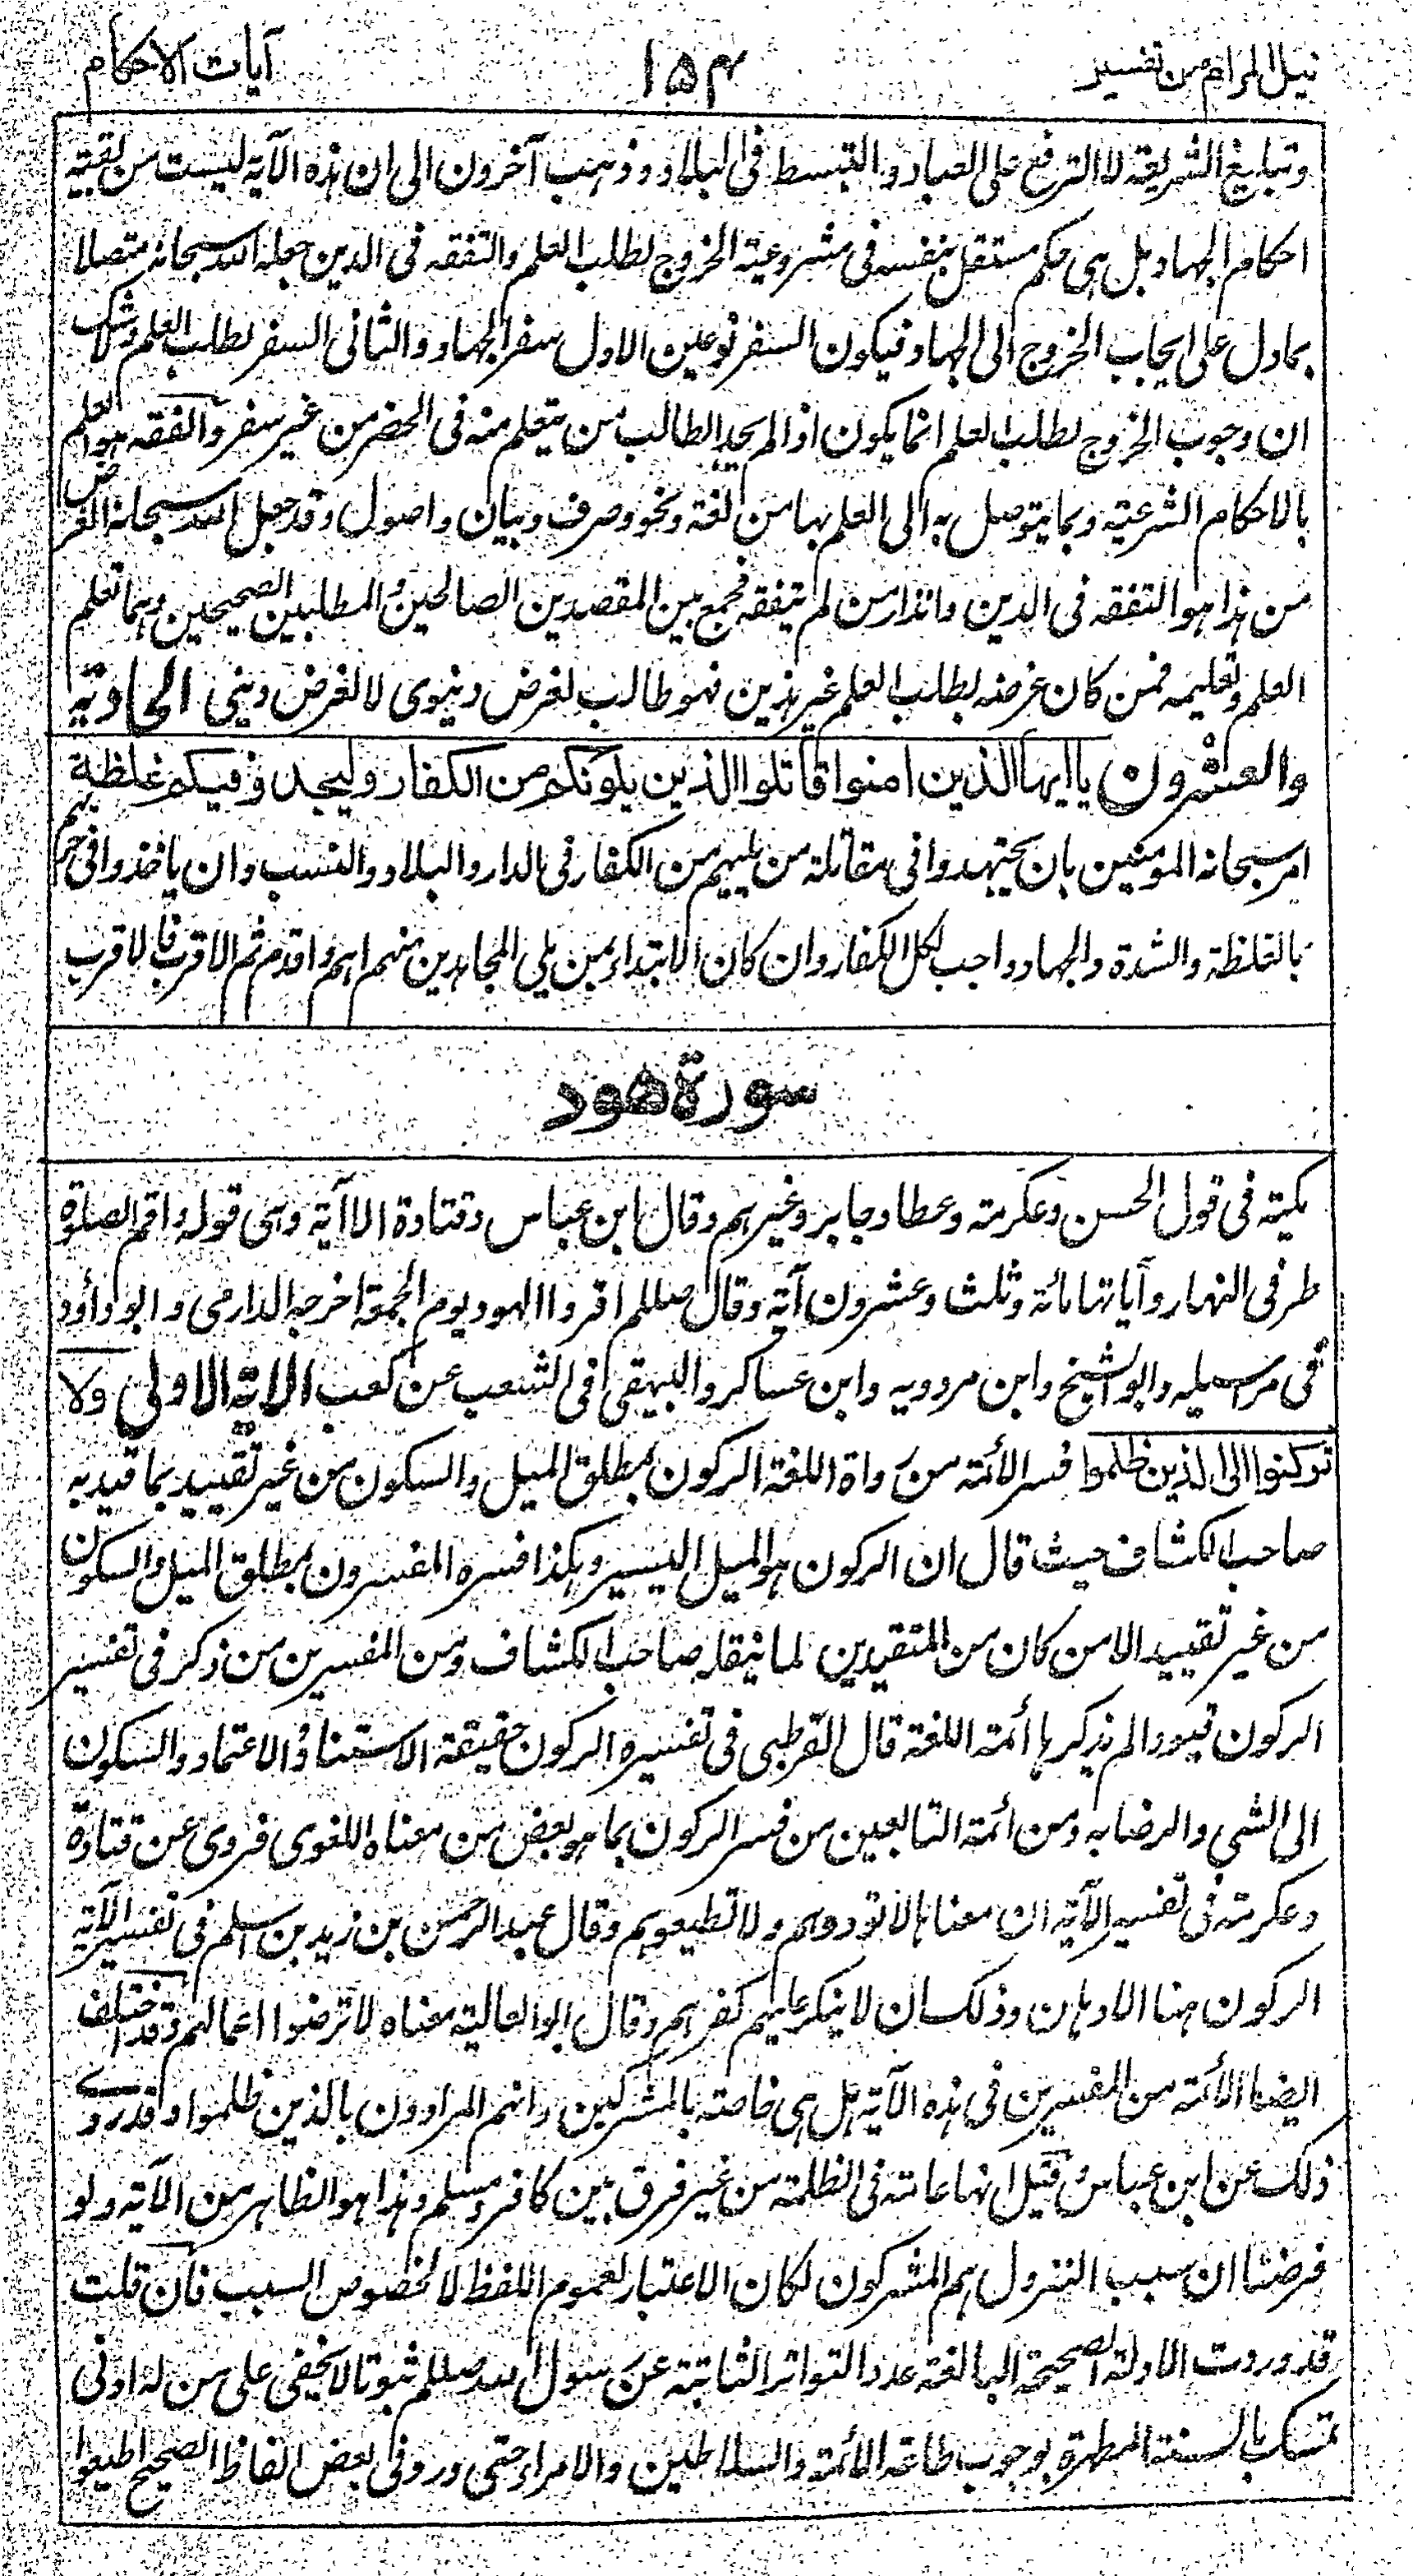 نيل المرام من تفسير ١٥٤ آيات الاحكام
وتبليغ الشريعة لا الترفع على العباد والتبسط فى البلاد وذهب آخرون الى ان هذه الآية ليست من بقية
احكام الجهاد بل هى حكم مستقل بنفسه فى مشروعية الخروج لطلب العلم والتفقه فى الدين جعله الله سبحانه متصلا
بما دل على ايجاب الخروج الى الجهاد فيكون السفر نوعين الاول سفر الجهاد والثانى السفر لطلب العلم ولا شك
ان وجوب الخروج لطلب العلم انما يكون اذا لم يجد الطالب من يتعلم منه فى الحضر من غير سفر والفقه هو العلم
بالاحكام الشرعية وبما يتوصل به الى العلم بها من لغة ونحو وصرف وبيان واصول وقد جعل الله سبحانه الغرض
من هذا هو التفقه فى الدين وانذار من لم يتفقه فجمع بين المقصدين الصالحين والمطلبين الصحيحين وهما تعلم
العلم وتعليمه فمن كان غرضه بطلب العلم غير هذين فهو طالب لغرض دنيوى لا لغرض دينى الحادية
والعشرون يا ايها الذين امنوا قاتلوا الذين يلونكم من الكفار وليجدوا فيكم غلظة
امر سبحانه المومنين بان يجتهدوا فى مقاتلة من يليهم من الكفار فى الدار والبلاد والنسب وان ياخذوا فى حربهم
بالغلظة والشدة والجهاد واجب لكل الكفار وان كان الابتداء بمن يلى المجاهدين منهم اهم واقدم ثم الاقرب فالاقرب
سورة هود
مكية فى قول الحسن وعكرمة وعطا وجابر وغيرهم وقال ابن عباس وقتادة الا آية وهى قوله واقم الصلوة
طرفى النهار وآياتها مائة وثلث وعشرون آية وقال صللم اقروا الهود يوم الجمعة اخرجه الدارمى وابو داود
فى مراسيله وابو الشيخ وابن مردويه وابن عساكر والبيهقى فى الشعب عن كعب الآية الاولى ولا
تركنوا الى الذين ظلموا فسر الأئمة من رواة اللغة الركون بمطلق الميل والسكون من غير تقييد بما قيد به
صاحب الكشاف حيث قال ان الركون هو الميل اليسير وهكذا فسره المفسرون بمطلق الميل والسكون
من غير تقييد الا من كان من المتقيدين لما ينقله صاحب الكشاف ومن المفسرين من ذكر فى تفسير
الركون قيودا لم يذكرها أئمة اللغة قال القرطبى فى تفسيره الركون حقيقة الاستناد والاعتماد والسكون
الى الشى والرضا به ومن أئمة التابعين من فسر الركون بما هو بعض من معناه اللغوى فروى عن قتادة
وعكرمة فى تفسير الآية ان معناها لا تودوهم ولا تطيعوهم وقال عبد الرحمن بن زيد بن اسلم فى تفسير الآية
الركون هنا الادهان وذلك ان لا ينكر عليهم كفرهم وقال ابو العالية معناه لا ترضوا اعمالهم وقد اختلف
ايضا الأئمة من المفسرين فى هذه الآية هل هى خاصة بالمشركين وانهم المرادون بالذين ظلموا وقد روى
ذلك عن ابن عباس وقيل انها عامة فى الظلمة من غير فرق بين كافر ومسلم وهذا هو الظاهر من الآية ولو
فرضنا ان سبب النزول هم المشركون لكان الاعتبار لعموم اللفظ لا لخصوص السبب فان قلت
قد وردت الادلة الصحيحة البالغة عدد التواتر الثابتة عن رسول الله صللم ثبوتا لا يخفى على من له ادنى
تمسك بالسنة المطهرة بوجوب طاعة الأئمة والسلاطين والامراء حتى ورد فى بعض الفاظ الصحيح اطيعوا